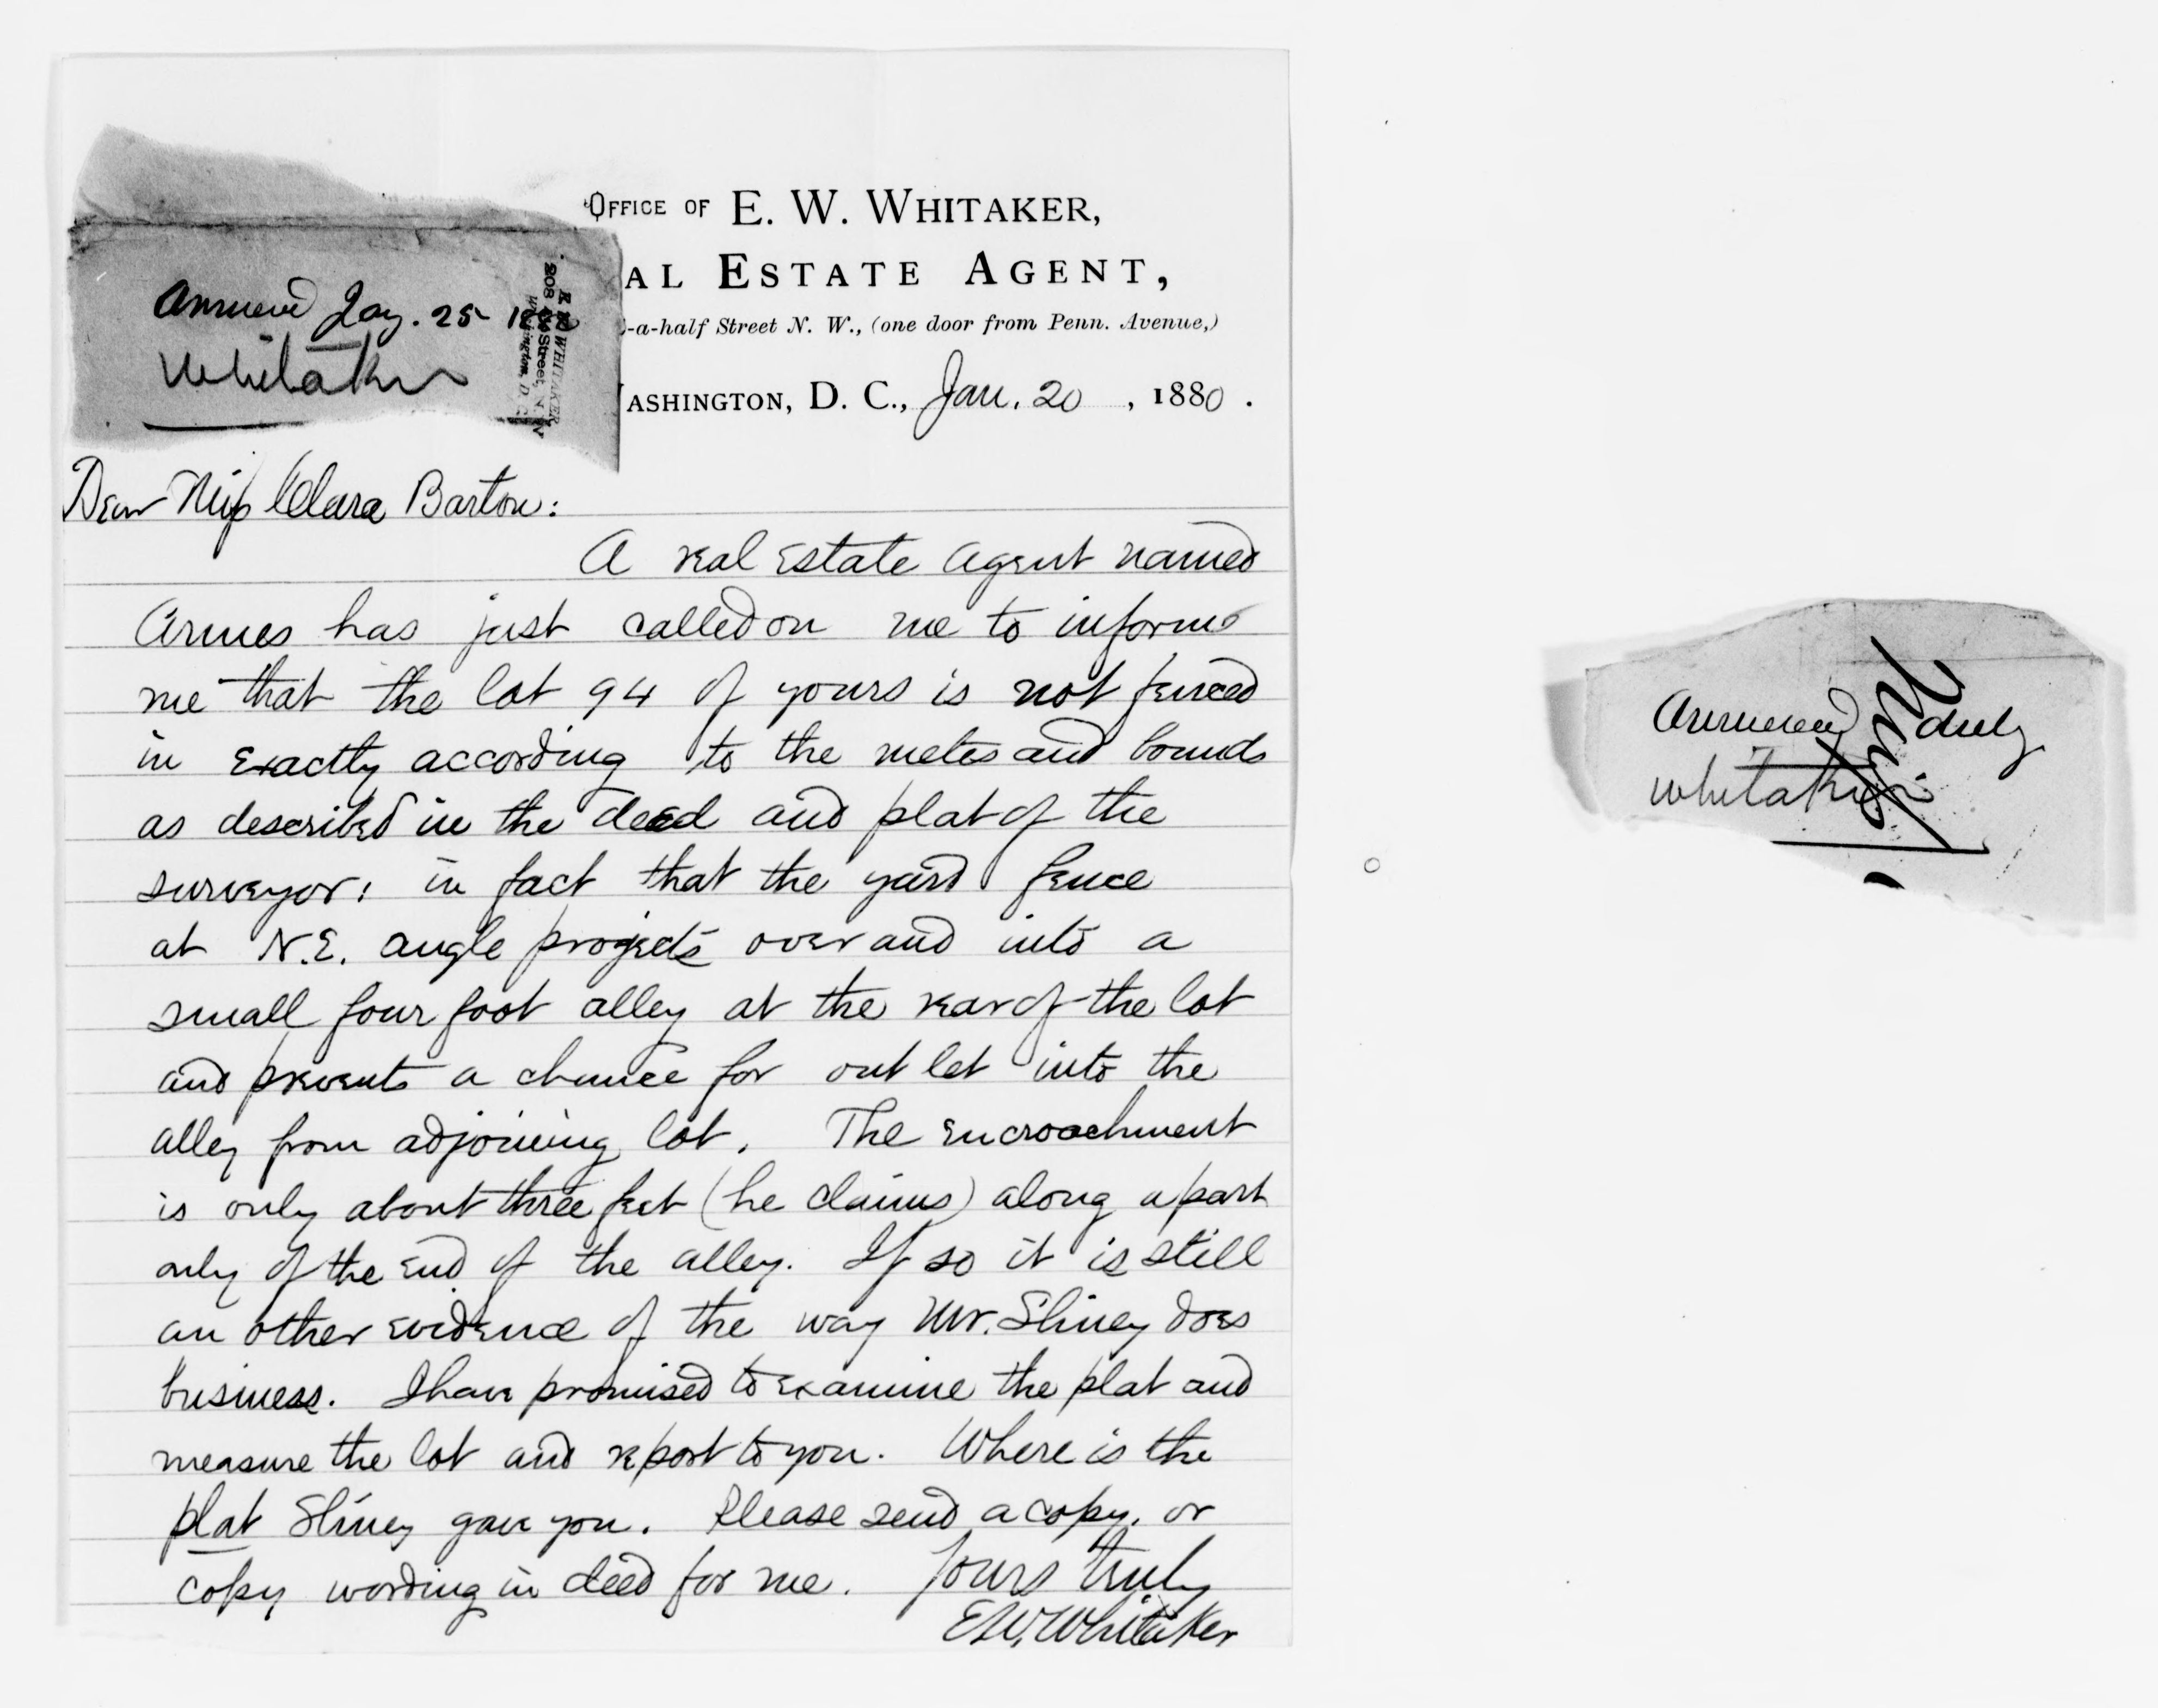 OFFICE OF E. W. WHITAKER,
AL ESTATE AGENT,
-a-half Street N. W., (one door from Penn. Avenue,)
ASHINGTON, D. C., Jan. 20, 1880.
Answered Jay. 25
Whitaker
E. W. WHITAKER
208 4½ Street, N. W
Washington, D. C.
Dear Miss Clara Barton:
A real Estate Agent named
Armes has just called on me to inform
me that the lot 94 of yours is not fenced
in Exactly according to the metes and bounds
as described in the deed and plat of the
surveyor: in fact that the yard fence
at N.E. angle projects over and into a
small four foot alley at the rear of the lot
and prevents a chance for out let into the
alley from adjoining lot. The Encroachment
is only about three feet (he claims) along a part
only of the End of the alley. If so it is still
an other Evidence of the way Mr. Shney does
business. I have promised to Examine the plat and
measure the lot and report to you. Where is the
plat Shney gave you. Please send a copy, or
copy wording in deed for me. Yours truly
E.W. Whitaker
Answered duly
Whitaker